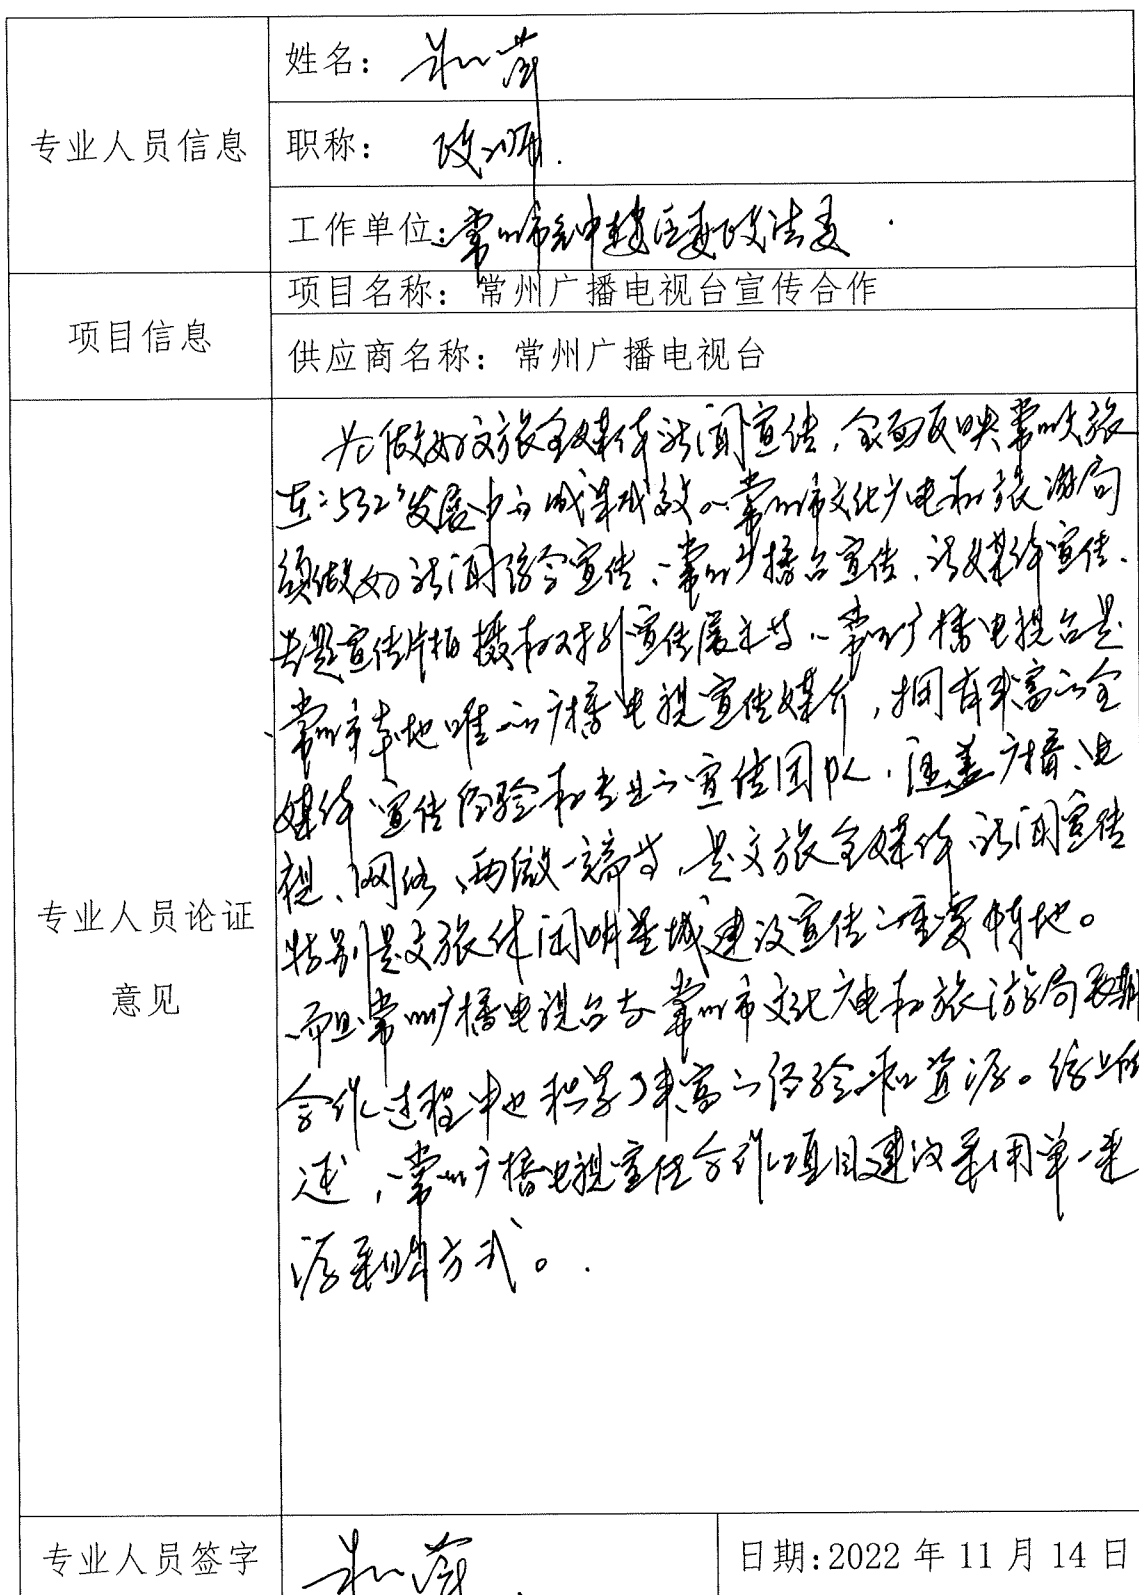 姓名：
专业人员信息
职称： 政工师.
工作单位：常州市钟楼区委政法委
项目信息
项目名称：常州广播电视台宣传合作
供应商名称：常州广播电视台
专业人员论证
意见
为做好文旅全媒体新闻宣传，全面反映常州文旅
在“532”发展中的成果成效，常州市文化广电和旅游局
须做好新闻综合宣传、常州广播台宣传、新媒体宣传、
专题宣传片拍摄和对外宣传展示等，常州广播电视台是
常州市本地唯一的广播电视宣传媒介，拥有丰富的全
媒体宣传经验和专业的宣传团队，涵盖广播、电
视、网络、两微一端等，是文旅全媒体新闻宣传
特别是文旅休闲明星城建设宣传的重要阵地。
而且常州广播电视台在常州市文化广电和旅游局长期
合作过程中也积累了丰富的经验和资源。综上所
述，常州广播电视宣传合作项目建议采用单一来
源采购方式。
专业人员签字
日期:2022年11月14日